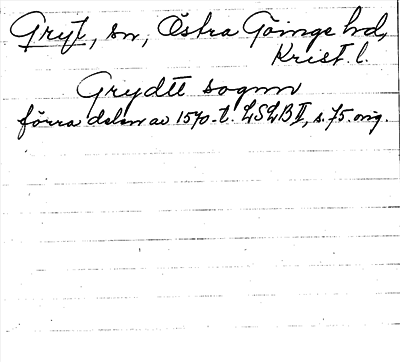 Gryt, sn, Östra Göinge hd,
Krist. l.
Grydtt sognn
förra delen av 1570-t. LSLB II, s. 75. orig.